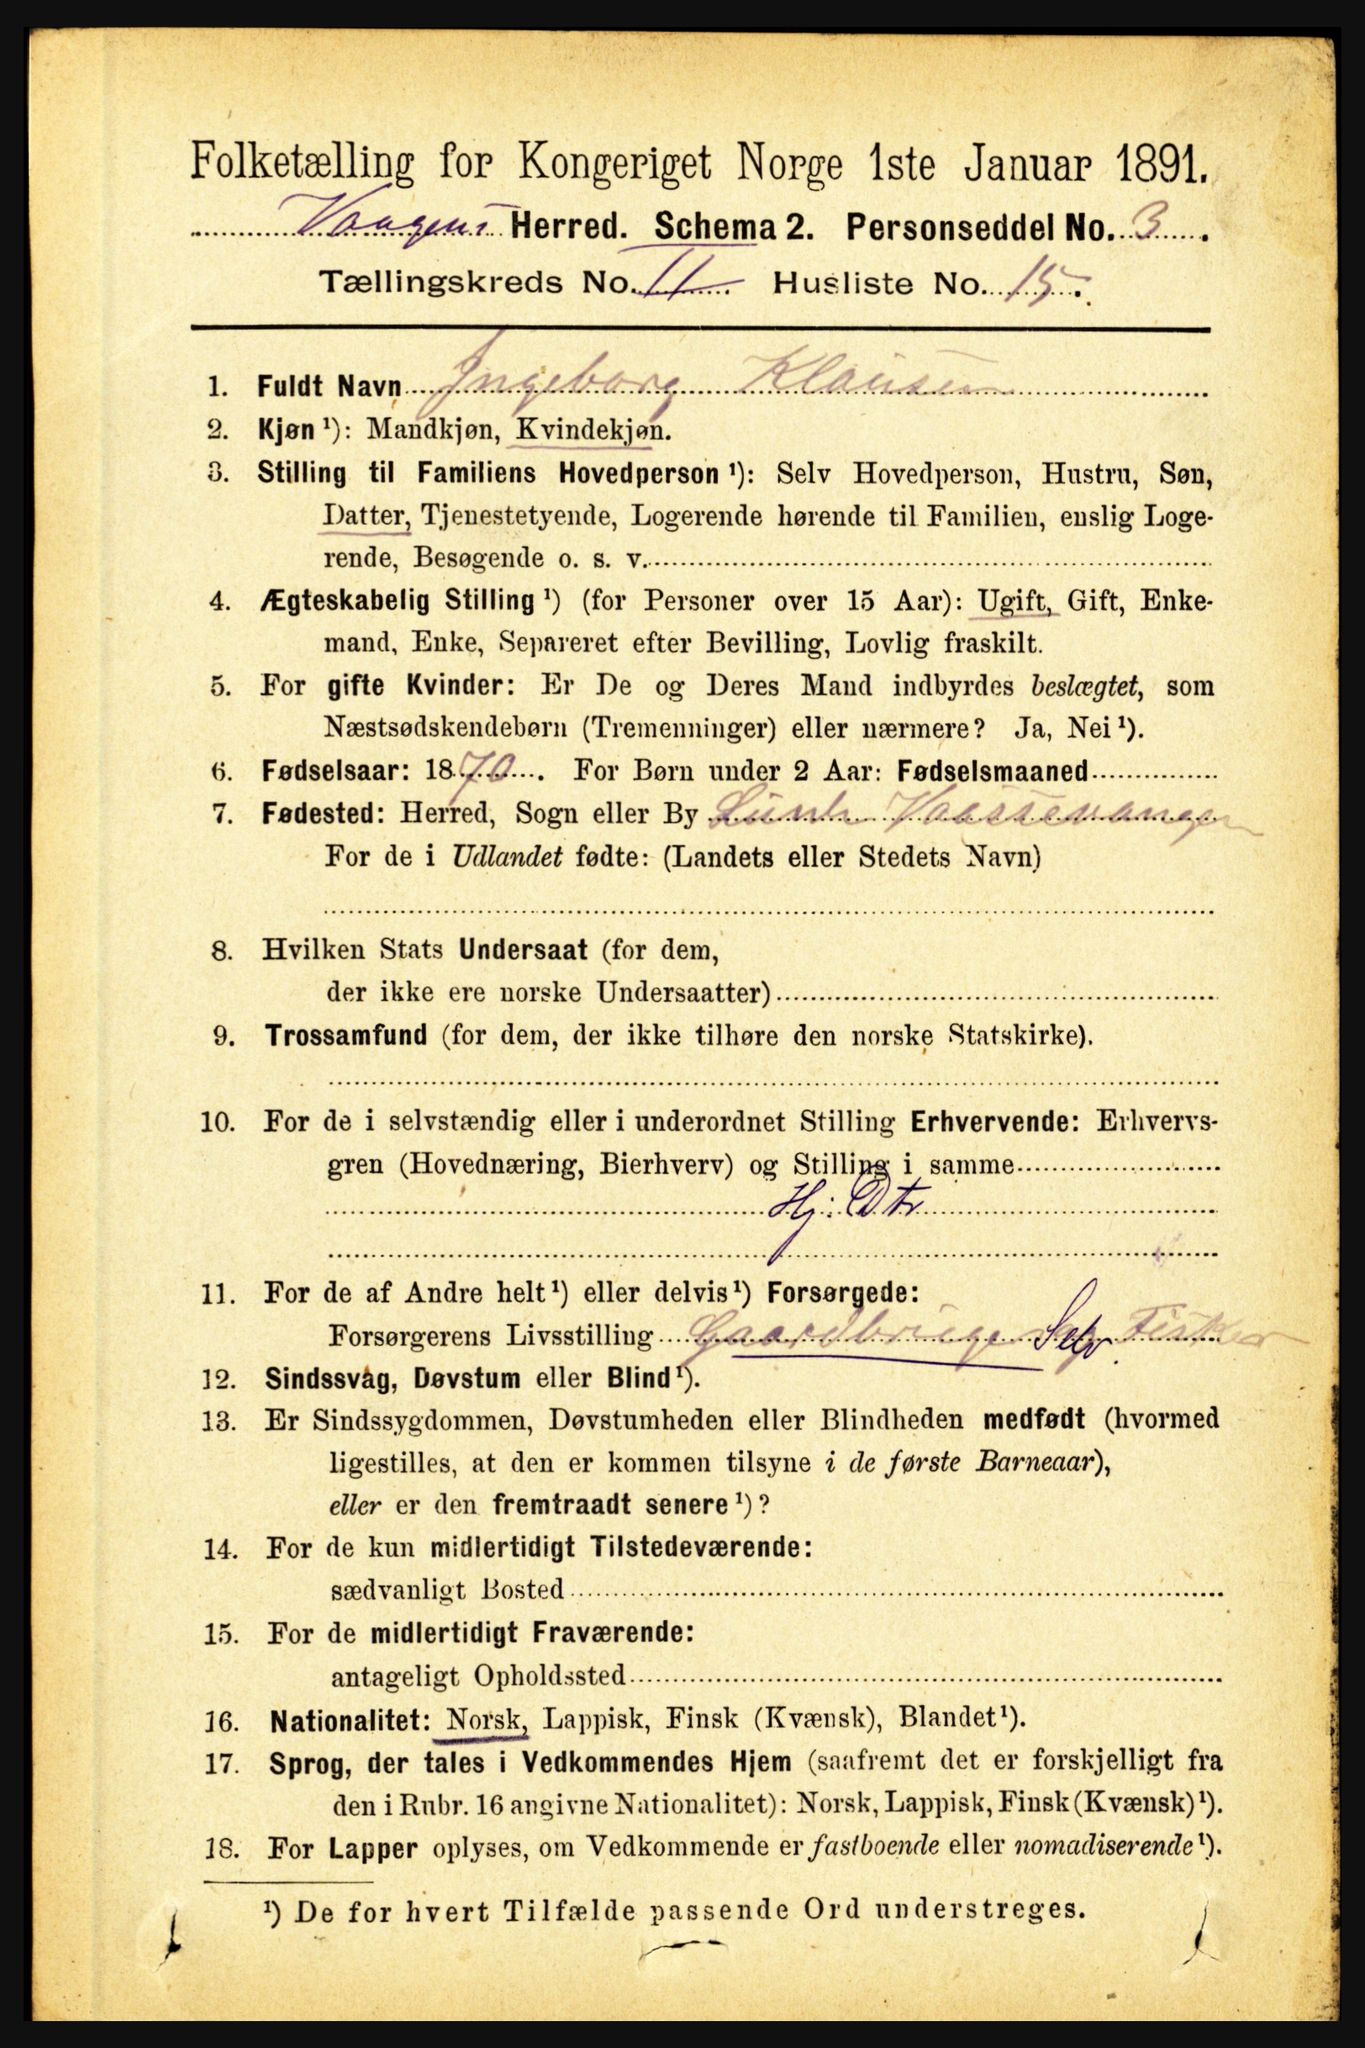 Folketælling for Kongeriget Norge 1ste Januar 1891.
Vaagens Herred. Schema 2. Personseddel No. 3.
Tællingskreds No. 11. Husliste No. 15.
1. Fuldt Navn Ingeborg Klausen
2. Kjøn ¹): Mandkjøn, Kvindekjøn.
3. Stilling til Familiens Hovedperson ¹): Selv Hovedperson, Hustru, Søn,
Datter, Tjenestetyende, Logerende hørende til Familien, enslig Loge-
rende, Besøgende o. s. v.
4. Ægteskabelig Stilling ¹) (for Personer over 15 Aar): Ugift, Gift, Enke-
mand, Enke, Separeret efter Bevilling, Lovlig fraskilt.
5. For gifte Kvinder: Er De og Deres Mand indbyrdes beslægtet, som
Næstsødskendebørn (Tremenninger) eller nærmere? Ja, Nei ¹).
6. Fødselsaar: 1870. For Børn under 2 Aar: Fødselsmaaned
7. Fødested: Herred, Sogn eller By
For de i Udlandet fødte: (Landets eller Stedets Navn)
8. Hvilken Stats Undersaat (for dem,
der ikke ere norske Undersaatter)
9. Trossamfund (for dem, der ikke tilhøre den norske Statskirke).
10. For de i selvstændig eller i underordnet Stilling Erhvervende: Erhvervs-
gren (Hovednæring, Bierhverv) og Stilling i samme
Hj: Dtr
11. For de af Andre helt ¹) eller delvis ¹) Forsørgede:
Forsørgerens Livsstilling Gaardbruger Selv Fisker
12. Sindssvag, Døvstum eller Blind ¹).
13. Er Sindssygdommen, Døvstumheden eller Blindheden medfødt (hvormed
ligestilles, at den er kommen tilsyne i de første Barneaar),
eller er den fremtraadt senere ¹)?
14. For de kun midlertidigt Tilstedeværende:
sædvanligt Bosted
15. For de midlertidigt Fraværende:
antageligt Opholdssted
16. Nationalitet: Norsk, Lappisk, Finsk (Kvænsk), Blandet ¹).
17. Sprog, der tales i Vedkommendes Hjem (saafremt det er forskjelligt fra
den i Rubr. 16 angivne Nationalitet): Norsk, Lappisk, Finsk (Kvænsk) ¹).
18. For Lapper oplyses, om Vedkommende er fastboende eller nomadiserende ¹).
¹) De for hvert Tilfælde passende Ord understreges.